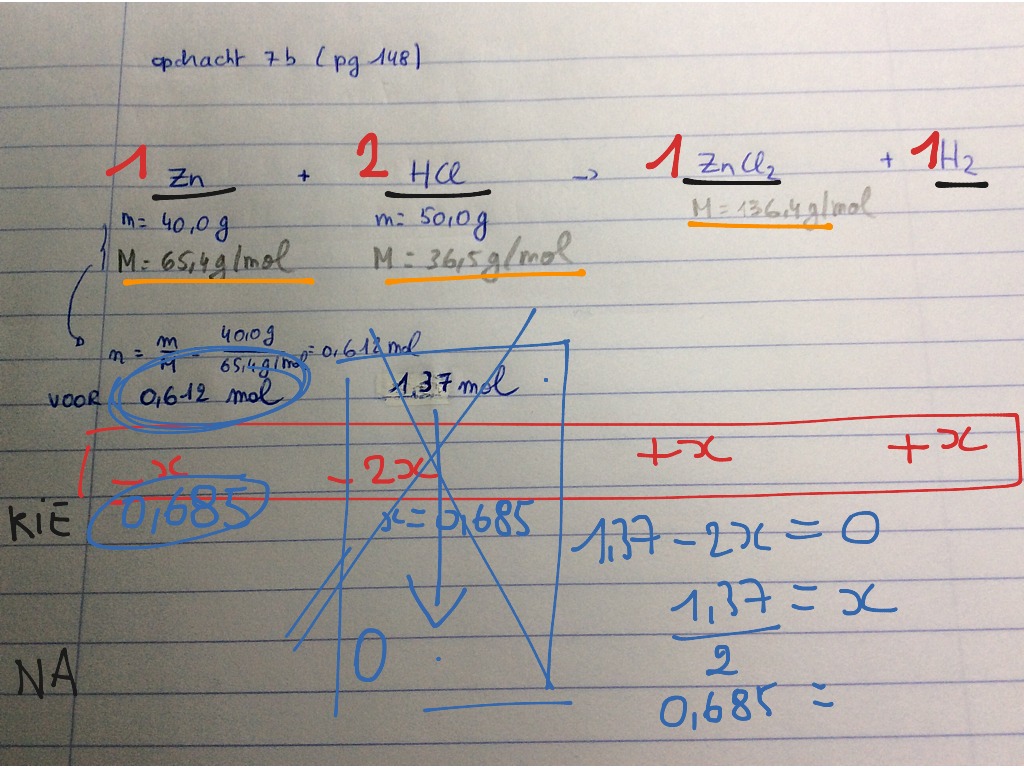 opdracht 7b (pg 148)
1 Zn + 2 HCl -> 1 ZnCl₂ + 1 H₂
m = 40,0g m = 50,0g M = 136,4g/mol
M = 65,4g/mol M = 36,5g/mol
n = m/M = 40,0g/65,4g/mol = 0,612 mol
VOOR 0,612 mol 1,37 mol
- x - 2x + x + x
KIĒ 0,685 x = 0,685 1,37 - 2x = 0
1,37/2 = x
NA 0 0,685 =